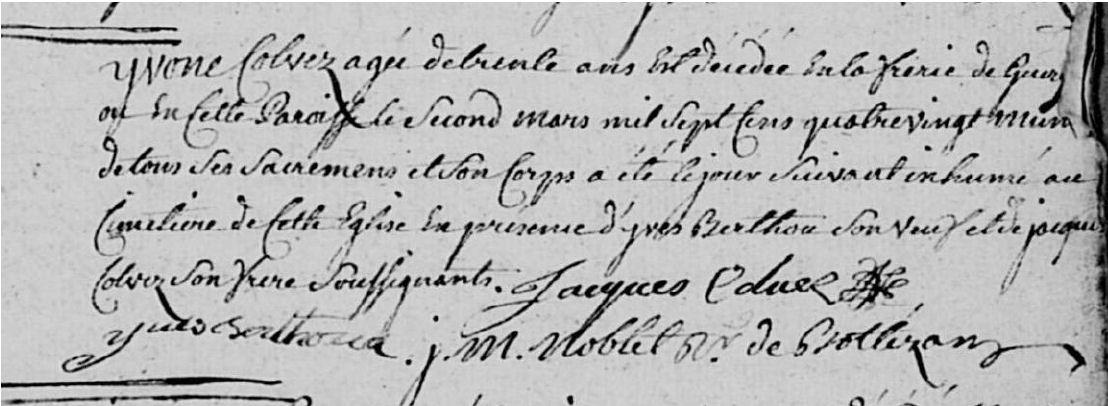 yvone Colvez agée de trente ans Est décédée En la frerie de Guer
ou En Cette Paroisse le Second mars mil Sept Cens quatrevingt mun
de tous Ses Sacremens et Son Corps a été le jour Suivant inhumé au
Cimetiere de Cette Eglise En presence d'yves Berthou Son veuf et de jacques
Colvez Son frere Soussignants. Jacques Coluez
yues berthou . j. M. Noblet Rr. de Botlézan